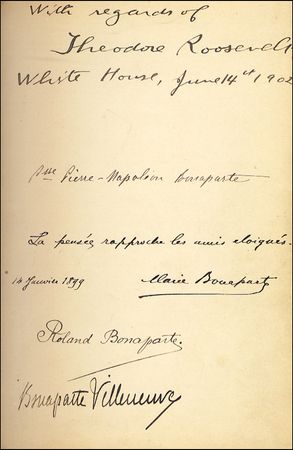 With regards of
Theodore Roosevelt
White House, June 14th 1902
Pcesse Pierre-Napoléon Bonaparte
La pensée rapproche les amis éloignés.
14 Janvier 1899 Marie Bonaparte
Roland Bonaparte.
Bonaparte Villeneuve